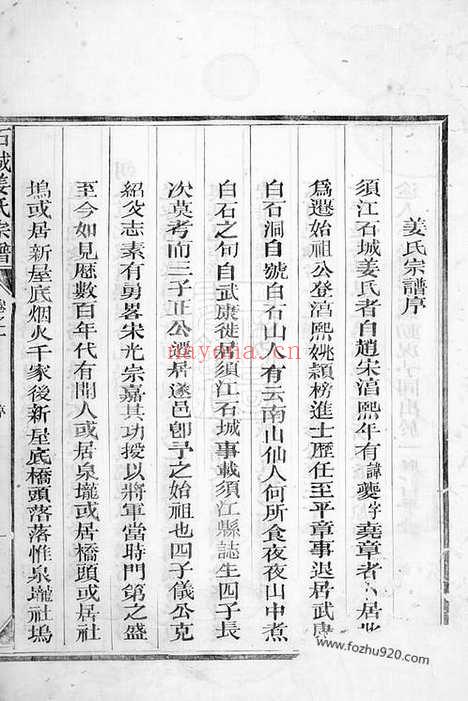 姜氏宗譜序
須江石城姜氏者自趙宋淳熙年有諱夔字堯章者居此
為遷始祖公登淳熙姚頴榜進士歷任至平章事退居武康
白石洞自號白石山人有云南山仙人何所食夜夜山中煮
白石之句自武康徙居須江石城事載須江縣誌生四子長
次莫考而三子正公遷居遂邑卽予之始祖也四子儀公克
紹父志素有勇畧宋光宗嘉其功授以將軍當時門第之盛
至今如見歷數百年代有聞人或居泉壠或居橋頭或居社
塢或居新屋底烟火千家後新屋底橋頭落落惟泉壠社塢
石城姜氏宗譜
nayona.cn
www.fozhu920.com